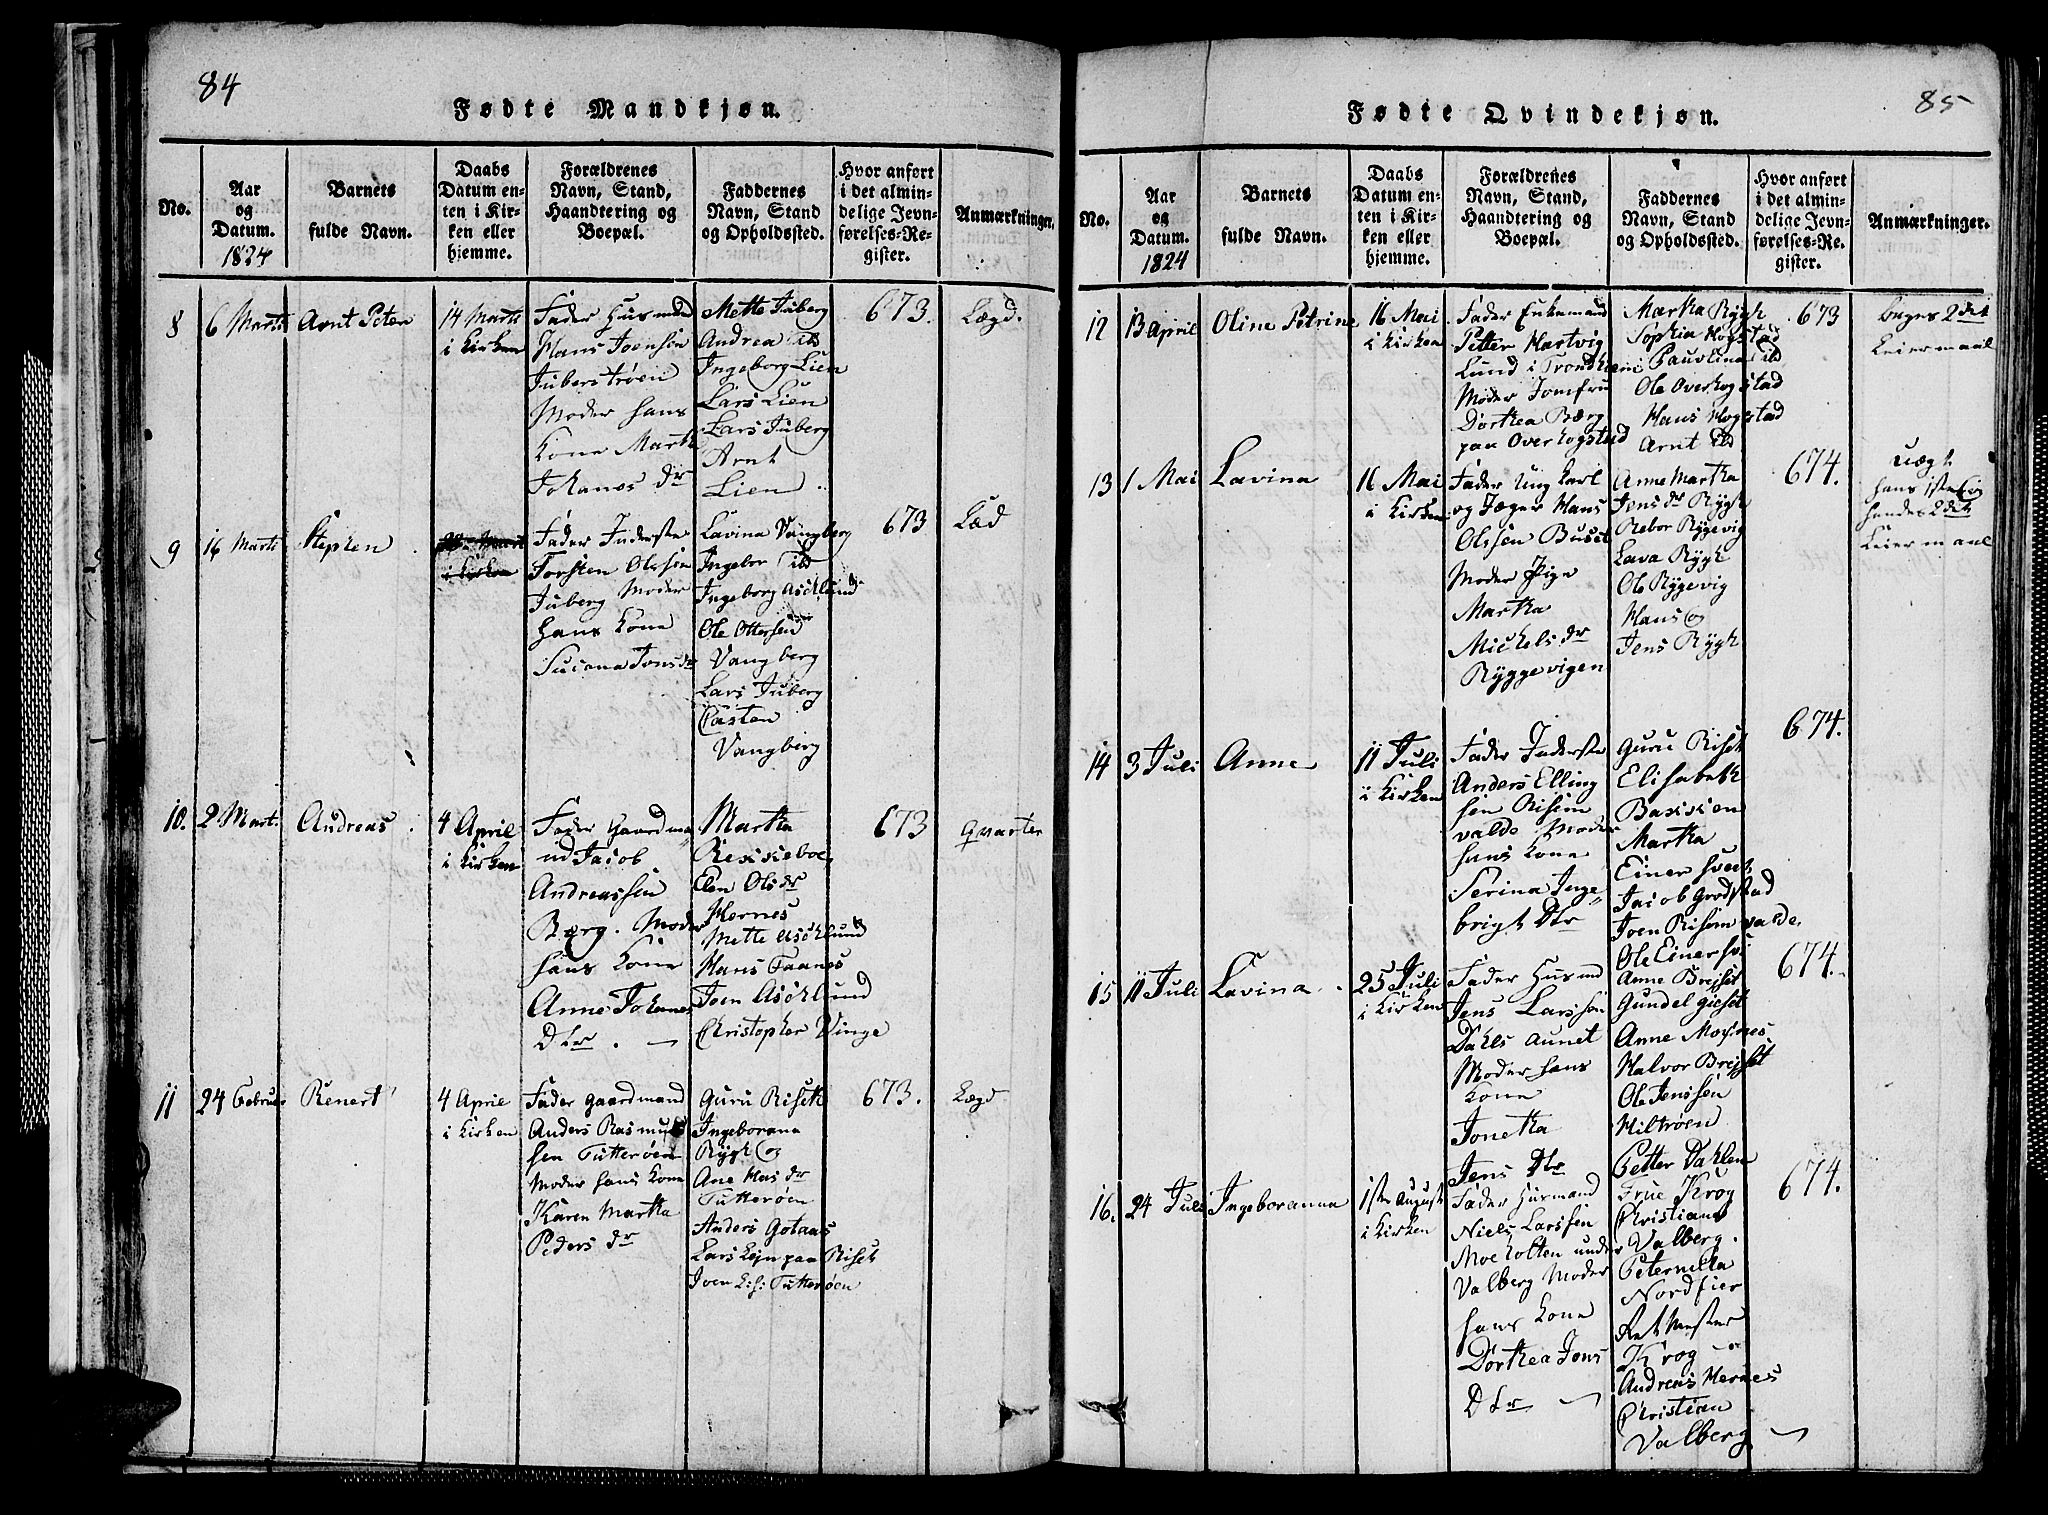 84
Fødte Mandkjøn.
No.
Aar
og
Datum.
1824
Barnets
fulde Navn.
Daabs
Datum en-
ten i Kir-
ken eller
hjemme.
Forældrenes
Navn, Stand,
Haandtering og
Boepæl.
Faddernes
Navn, Stand
og Opholdssted.
Hvor anført
i det almin-
delige Jevn-
førelses-Re-
gister.
Anmærkninger.
8
6 Marti
Arnt Peter
14 Marti
i Kirken
Fader Husmd
Hans Joensen
Juberstrøen
Moder hans
Kone Marth
Johanes dr
Mette Juberg
Andrea ibd
Ingeborg Lien
Lars Lien
Lars Juberg
Arnt
Lien
673.
Lægd.
9
16 Marti
Stephen
i Kirken
Fader Inderste
Torsten Olssen
Juberg Moder
hans Kone
Susana Jonsdr
Lavina Vangberg
Ingebor ibd
Ingeborg Aschlund
Ole Ottersen
Vangberg
Lars Juberg
Casten
Vangberg
673
Læd
10.
2 Mart.
Andreas
4 April
i Kirken
Fader Gaardma
nd Jacob
Andreassen
Berg. Moder
hans Kone
Anne Johanes
Dtr.
Martha
Rexxieboe
Elen Olsdr
Hernes
Mette Aschlund
Hans Faanes
Joen Aschlund
Christopher Vinge
673
Qvarter
11
24 Februar
Renert
4 April
i Kirken
Fader Gaardmand
Anders Rasmus
sen Tutterøen
Moder hans Kone
Karen Martha
Peders dr
Guru Riseth
Ingeborana
Rygh og
Ane Has dr
Tutterøen
Anders Gotaas
Lars Lejn paa Riset
Joen Tutterøen
673.
Lægd
85
Fødte Qvindekjøn.
No.
Aar
og
Datum.
1824
Barnets
fulde Navn.
Daabs
Datum en-
ten i Kir-
ken eller
hjemme.
Forældrenes
Navn, Stand,
Haandtering og
Boepæl.
Faddernes
Navn, Stand
og Opholdssted.
Hvor anført
i det almin-
delige Jevn-
førelses-Re-
gister.
Anmærkninger.
12
13 April
Oline Petrine
16 Mai
i Kirken
Fader Enkemand
Petter Hartvig
Lund i Trondhiem
Moder Jomfru
Dorthea Bærg
paa Overhogstad
Martha Rygh
Sophia Hogstad
Pauvlina ibd
Ole Overhogstad
Hans Hogstad
Arnt ibd
673
begges 2det
Leiermaal
13
1 Mai
Lavina
16 Mai
i Kirken
Fader Ung Karl
og Jæger Hans
Olssen Buset
Moder Pige
Martha
Michels dr
Ryggevigen
Anne Martha
Jens dr Rygh
Rebor Rygevig
Lava Rygh
Ole Rygevig
Hans og
Jens Rygh
674.
uægt
hans 1ste og
hendes 2det
Leiermaal
14
3 Juli
Anne
11 Juli
i Kirken
Fader Inderste
Anders Elling
sen Risem
valde Moder
hans Kone
Serina Inge-
brigt Dtr
Guru Riset
Elisabeth
Baxxen
Martha
Einersveet
Jacob Grodstad
Joen Risem valde
Ole Einersv:
674.
15
11 Juli
Lavina
25 Juli
i Kirken
Fader Husmd
Jens Larssen
Dahls aunet
Moder hans
Kone
Jonetha
Jens Dtr
Anne Brejset
Gundel Gieset
Anne Moxnes
Halvor Brejset
Ole Jenssen
Hiltrøen
Petter Dahlen
674.
16.
24 Juli
Ingeboranna
1ste August
i Kirken
Fader Husmand
Niels Larssen
Moeholten under
Valberg Moder
hans Kone
Dorthea Jons
Dtr
Frue Krog
Christiana
Valberg.
Peternilka
Nordfier
Ret Mester
Krog
Andreas Hernes
Christian
Valberg
674.